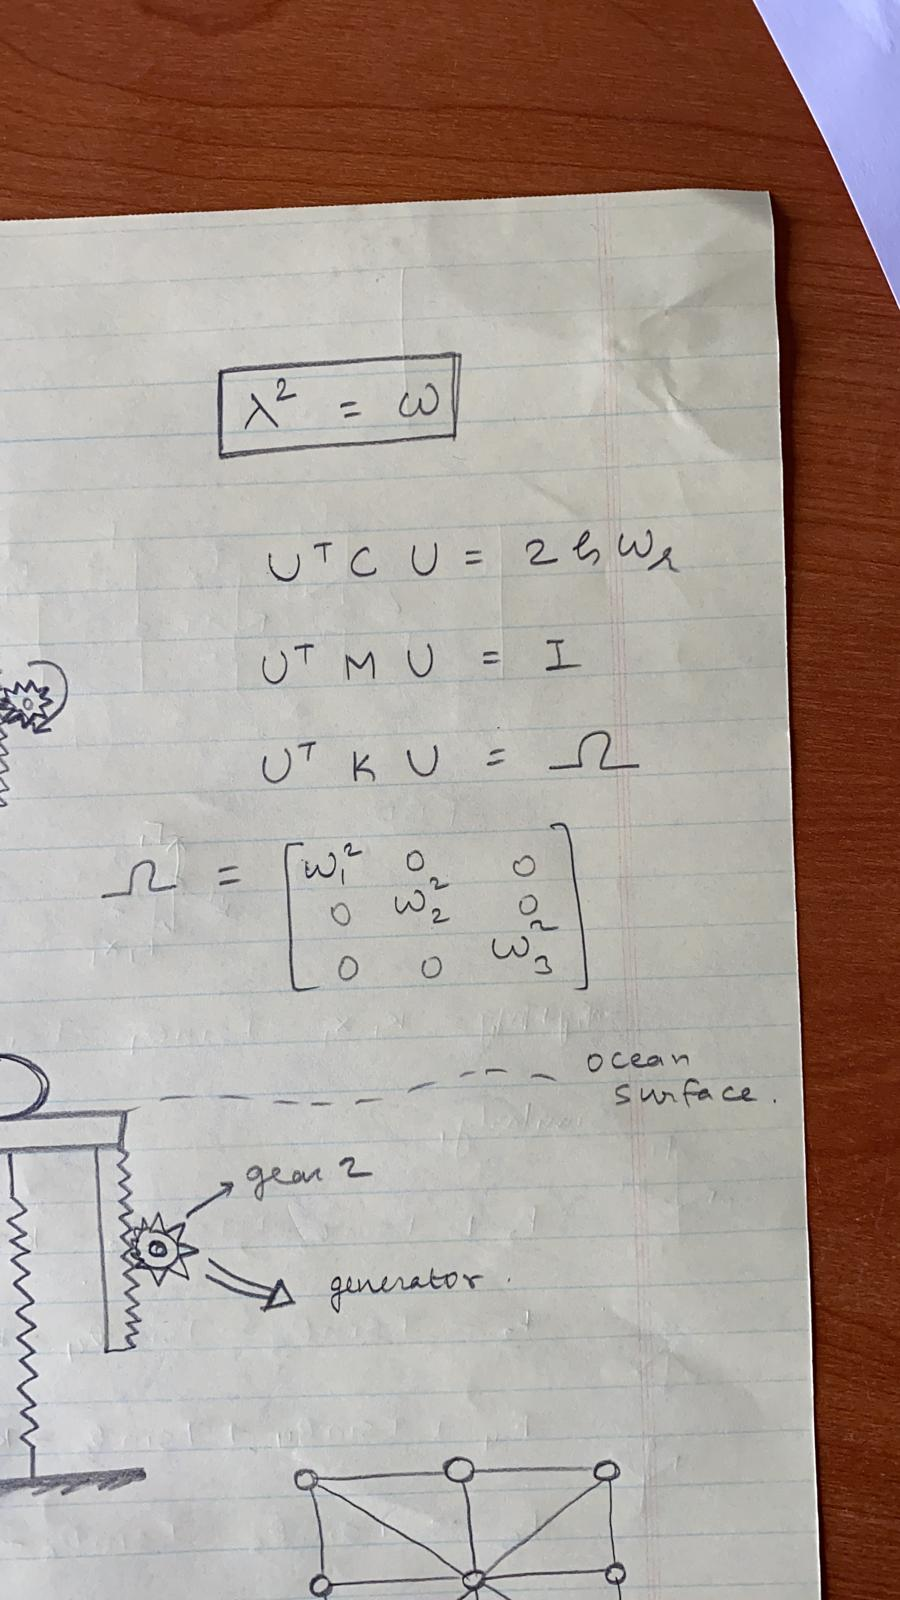 λ² = ω
Uᵀ C U = 2 ζ ωᵣ
Uᵀ M U = I
Uᵀ K U = Ω
Ω = [ω₁² 0 0
0 ω₂² 0
0 0 ω₃²]
ocean
surface.
gear 2
generator.